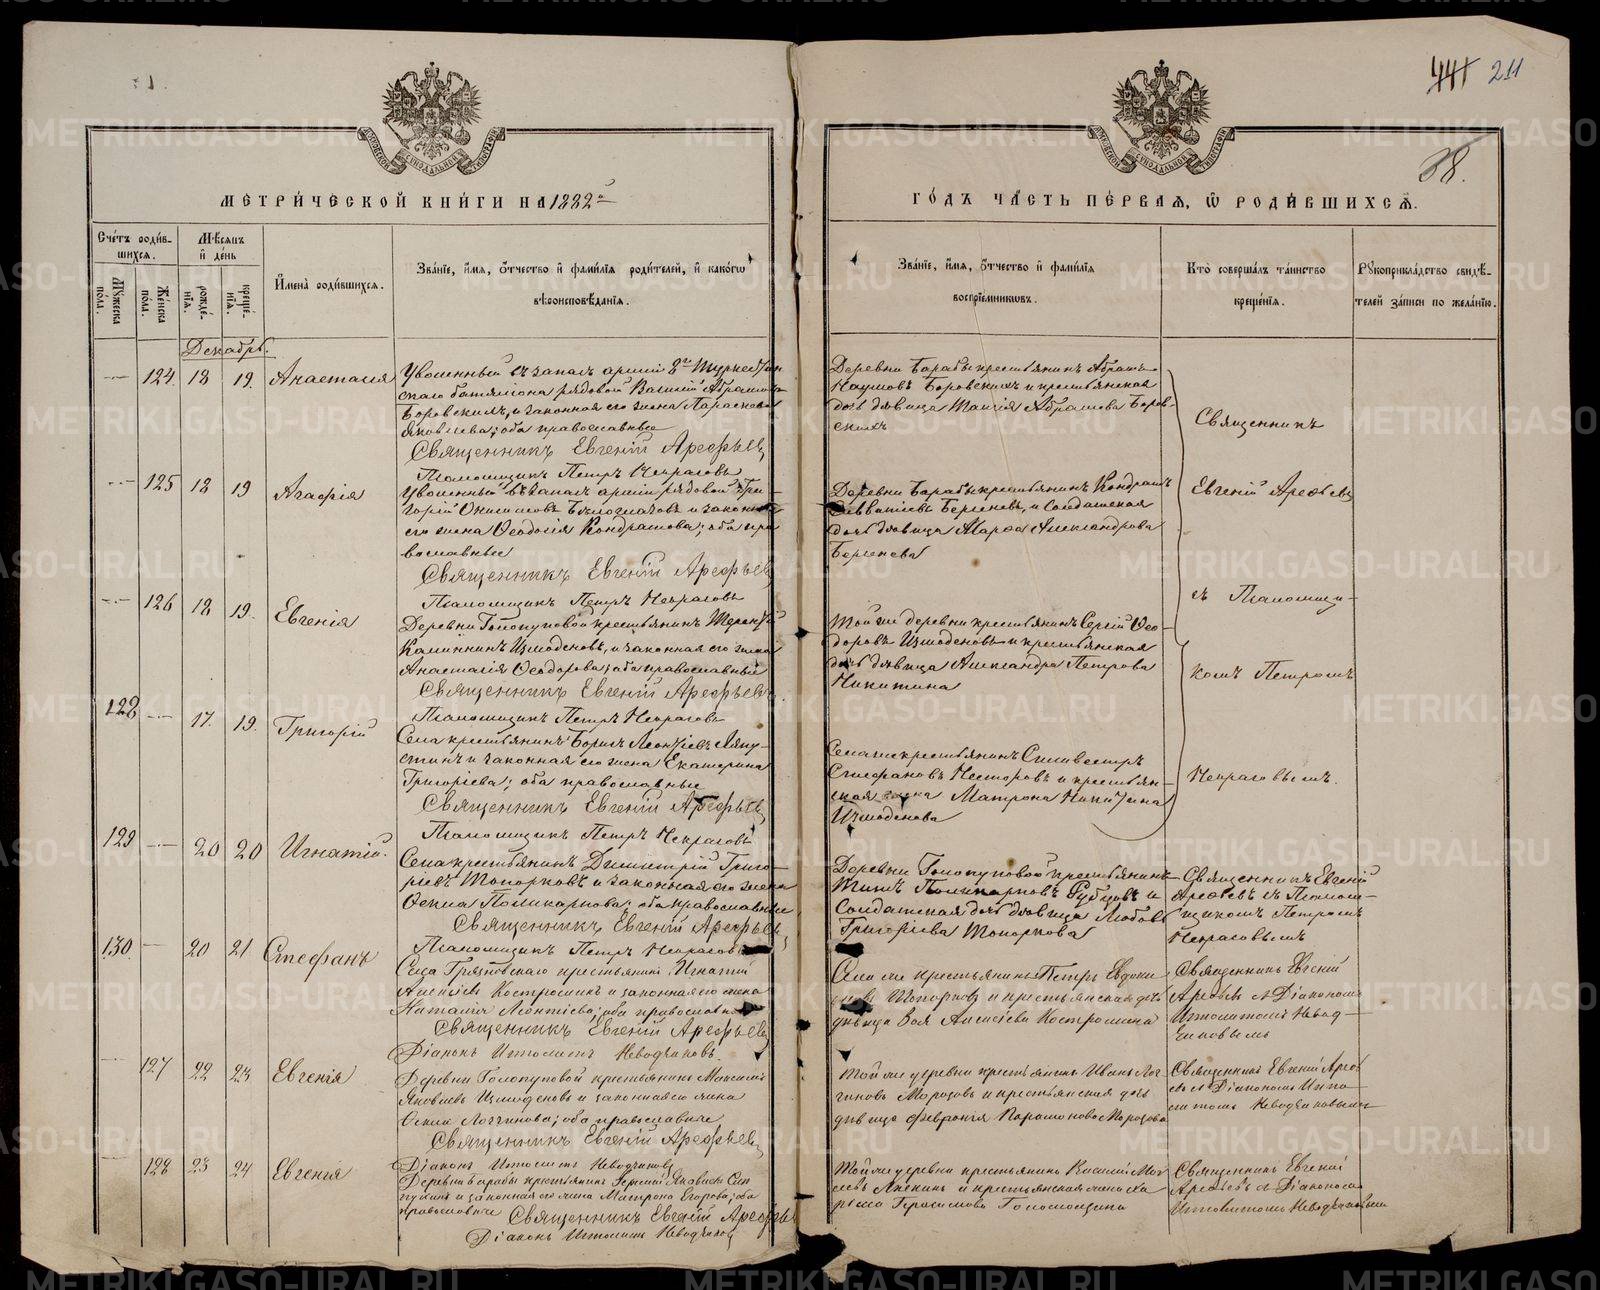 441 211
38.
МЕТРИЧЕСКОЙ КНИГИ НА 1882й
ГОДЪ ЧАСТЬ ПЕРВАЯ, Ѡ РОДИВШИХСЯ.
Счетъ родившихся.
Мужеска пола.
Женска пола.
Мѣсяцъ и день
рожденія.
крещенія.
Имена родившихся.
Званіе, имя, отчество и фамилія родителей, и какогѡ
вѣроисповѣданія.
Званіе, имя, отчество и фамилія
воспріемниковъ.
Кто совершалъ таинство
крещенія.
Рукоприкладство свидѣ-
телей записи по желанію.
Декабрь.
124 18 19. Анастасія
Уволенный въ запасъ арміи 2го Туркестан
скаго баталіона рядовой Василій Абрамовъ
Боровскихъ, и законная его жена Параскева
Яковлева; оба православные
Священникъ Евгеній Арефьевъ
Псаломщикъ Петръ Некрасовъ
Деревни Барабы крестьянинъ Абрамъ
Наумовъ Боровскихъ и крестьянская
дочь дѣвица Таисія Абрамова Боров-
скихъ
Священникъ
Евгеній Арефьевъ
съ Псаломщи-
комъ Петромъ
Некрасовымъ.
125 18 19 Агафія
Уволенный въ запасъ арміи рядовой Гри-
горій Онисимовъ и законная
его жена Ѳеодосія Кондрашова; оба пра
вославные
Священникъ Евгеній Арефьевъ
Псаломщикъ Петръ Некрасовъ
Деревни Барабы крестьянинъ Кондратъ
Савватіевъ Берсеневъ, и Солдатская
дочь дѣвица Марѳа Александрова
Берсенева
126 18 19. Евгенія
Деревни Голопуповой крестьянинъ Терентій
Калинникъ Измоденовъ, и законная его жена
Анастасія Ѳеодорова; оба православные
Священникъ Евгеній Арефьевъ
Псаломщикъ Петръ Некрасовъ
Той же деревни крестьянинъ Сергій Ѳео-
доровъ Измоденовъ и крестьянская
дочь дѣвица Александра Петрова
Никитина
128 17. 19. Григорій
Села крестьянинъ Борисъ Леонтіевъ Ляпу-
стинъ и законная его жена Екатерина
Григоріева; оба православные
Священникъ Евгеній Арефьевъ
Псаломщикъ Петръ Некрасовъ
Села же крестьянинъ Сильвестръ
Стефановъ Несторовъ и крестьян-
ская жена Матрона Никитина
Измоденова
129 20 20 Игнатій.
Села крестьянинъ Димитрій Григо-
ріевъ Топорковъ и законная его жена
Ѳекла Поликарпова; оба православные
Священникъ Евгеній Арефьевъ
Псаломщикъ Петръ Некрасовъ
Деревни Голопуповой крестьянинъ
Титъ Поликарповъ Рубцовъ и
Солдатская дочь дѣвица Любовь
Григоріева Топоркова
Священникъ Евгеній
Арефьевъ съ Псалом-
щикомъ Петромъ
Некрасовымъ
130 20 21 Стефанъ
Села Грязновскаго крестьянинъ Игнатій
Алексіевъ Костроминъ и законная его жена
Наталія Леонтіева; оба православные
Священникъ Евгеній Арефьевъ
Діаконъ Ипполитъ Неводчиковъ.
Села же крестьянинъ Петръ Евдоки
мовъ Топорковъ и крестьянская дочь
дѣвица Зоя Алексіева Костромина
Священникъ Евгеній
Арефьевъ съ Діакономъ
Ипполитомъ Невод-
чиковымъ
127 22 23 Евгенія
Деревни Голопуповой крестьянинъ Максимъ
Яковлевъ Измоденовъ и законная его жена
Ѳекла Логгинова; оба православные
Священникъ Евгеній Арефьевъ
Діаконъ Ипполитъ Неводчиковъ
Той же деревни крестьянинъ Иванъ Лог
гиновъ Морозовъ и крестьянская дочь
дѣвица Февронія Парамонова Морозова
Священникъ Евгеній Ареф
ьевъ съ Діакономъ Иппо
литомъ Неводчиковымъ
128 23 24 Евгенія
Деревни Барабы крестьянинъ Яковлевъ
и законная его жена Матрона Егорова; оба
православные Священникъ Евгеній Арефьевъ
Діаконъ Ипполитъ Неводчиковъ
Той же деревни крестьянинъ Василій
и крестьянская жена Ха
ритина Герасимова
Священникъ Евгеній
Арефьевъ съ Діакономъ
Ипполитомъ Неводчиковымъ
METRIKI.GASO-URAL.RU